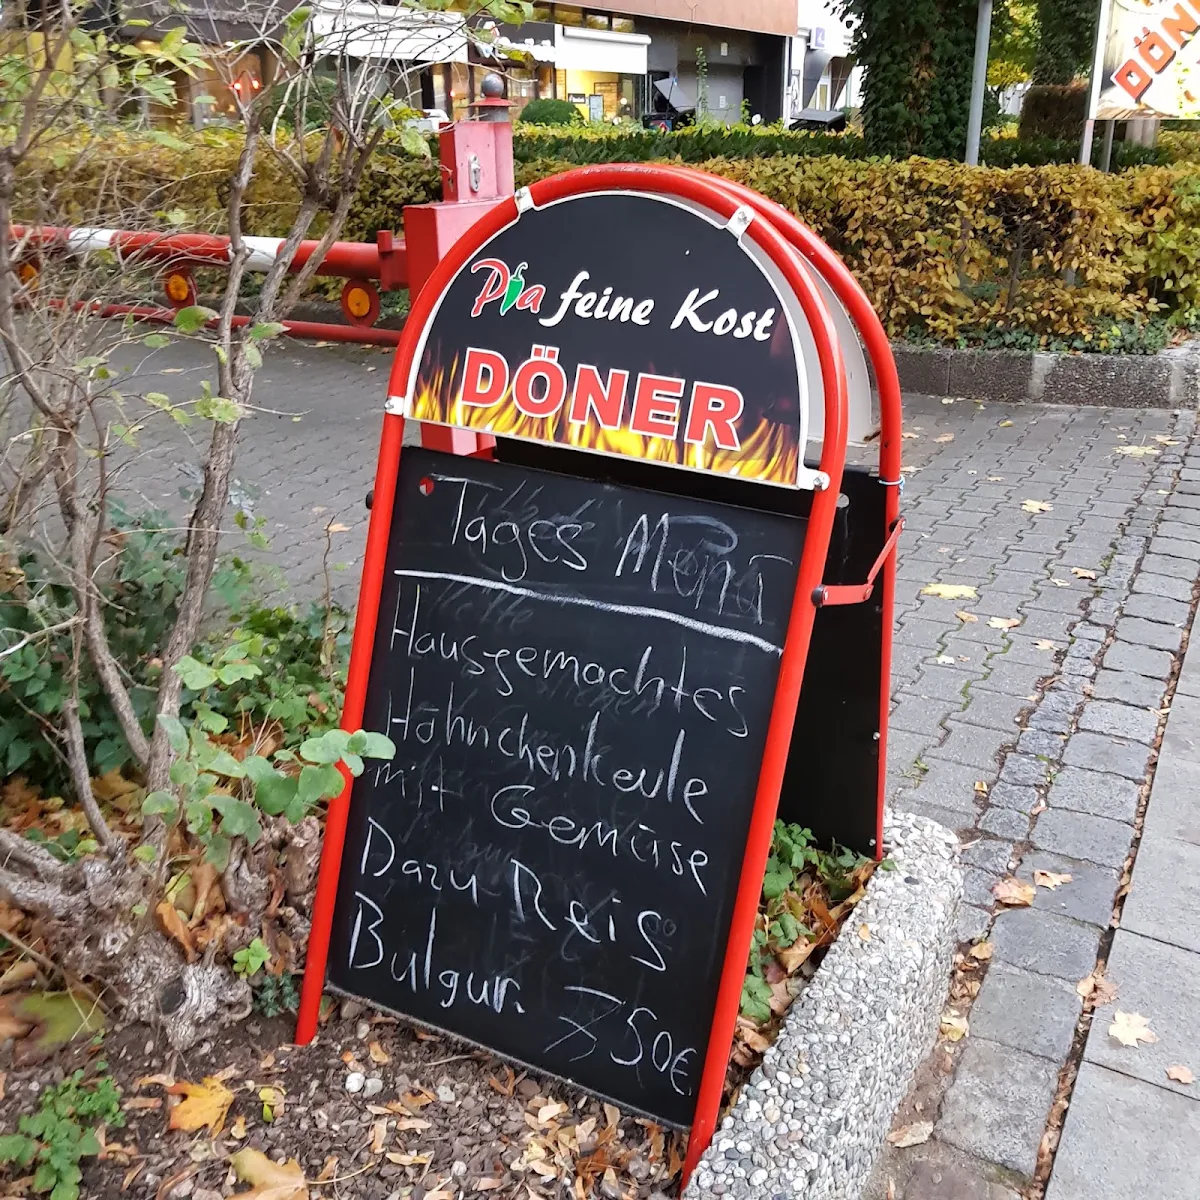 Pia feine Kost
DÖNER
Tages Menü
Hausgemachtes
Hähnchenkeule
mit Gemüse
Dazu Reis
Bulgur. 7 50€
DÖN